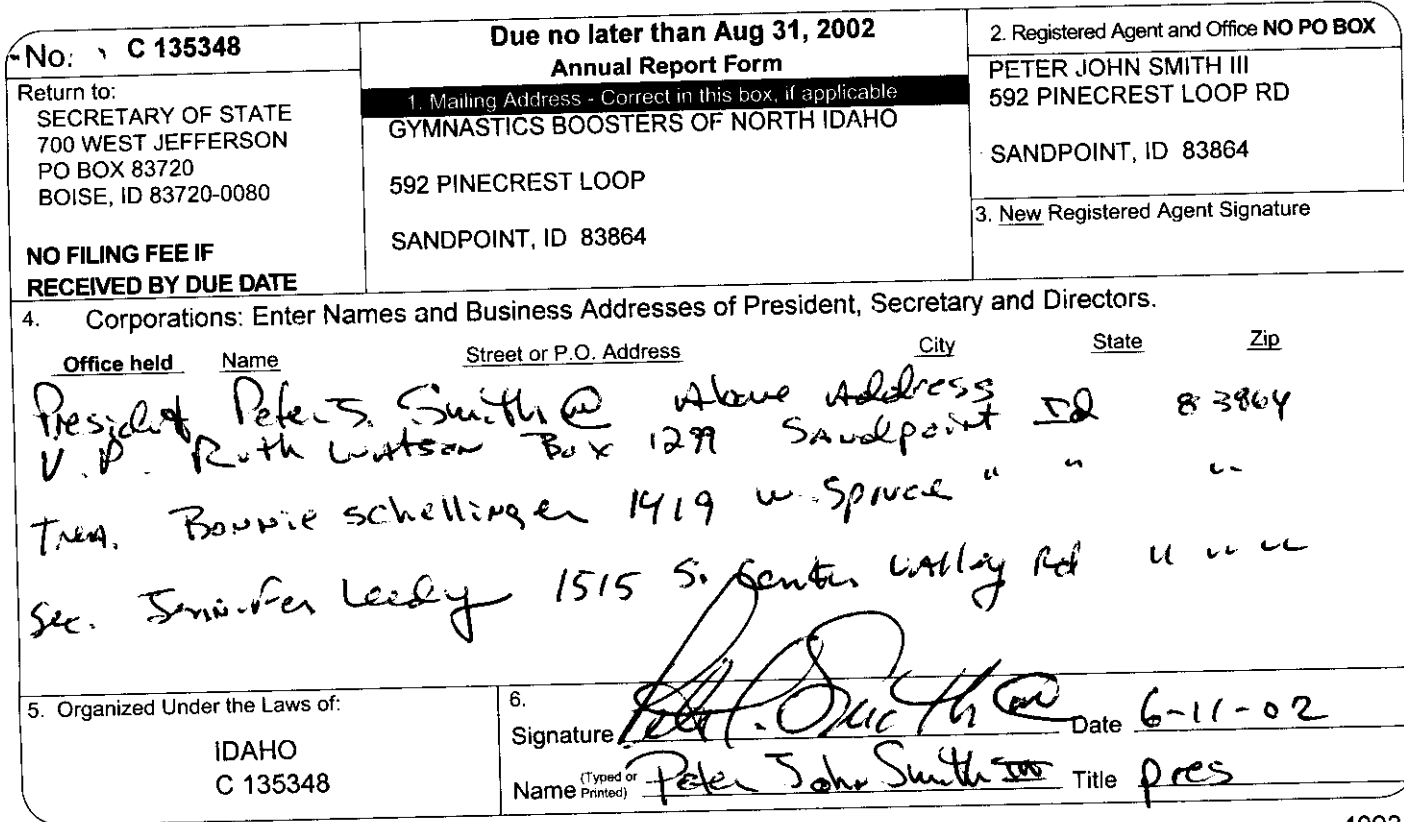 No: C 135348
Return to:
SECRETARY OF STATE
700 WEST JEFFERSON
PO BOX 83720
BOISE, ID 83720-0080
NO FILING FEE IF
RECEIVED BY DUE DATE
Due no later than Aug 31, 2002
Annual Report Form
1. Mailing Address - Correct in this box, if applicable
GYMNASTICS BOOSTERS OF NORTH IDAHO
592 PINECREST LOOP
SANDPOINT, ID 83864
2. Registered Agent and Office NO PO BOX
PETER JOHN SMITH III
592 PINECREST LOOP RD
SANDPOINT, ID 83864
3. New Registered Agent Signature
4. Corporations: Enter Names and Business Addresses of President, Secretary and Directors.
Office held Name Street or P.O. Address City State Zip
President Peter J. Smith III Above Address
V.P. Ruth Watson Box 1299 Sandpoint Id 83864
Trea. Bonnie Schellinger 1419 W. Spruce " " "
Sec. Jennifer Leedy 1515 S. Center Valley Rd " " "
5. Organized Under the Laws of:
IDAHO
C 135348
6.
Signature Peter J. Smith III Date 6-11-02
Name (Typed or Printed) Peter John Smith III Title pres